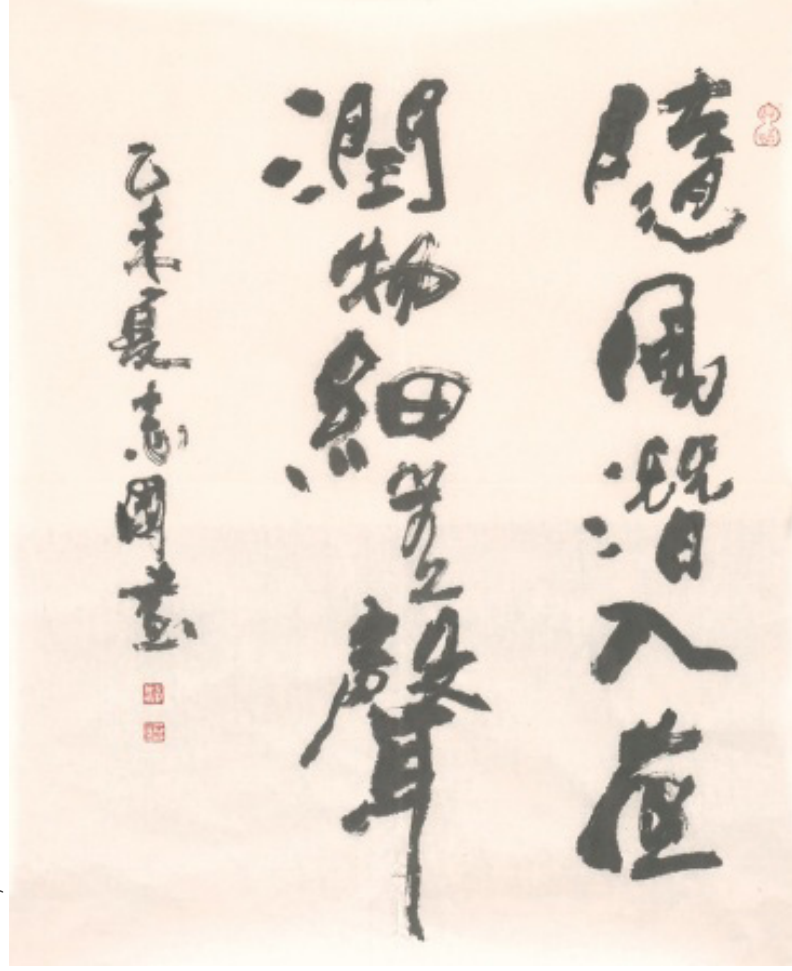 隨風潛入夜
潤物細無聲
乙未夏志國書